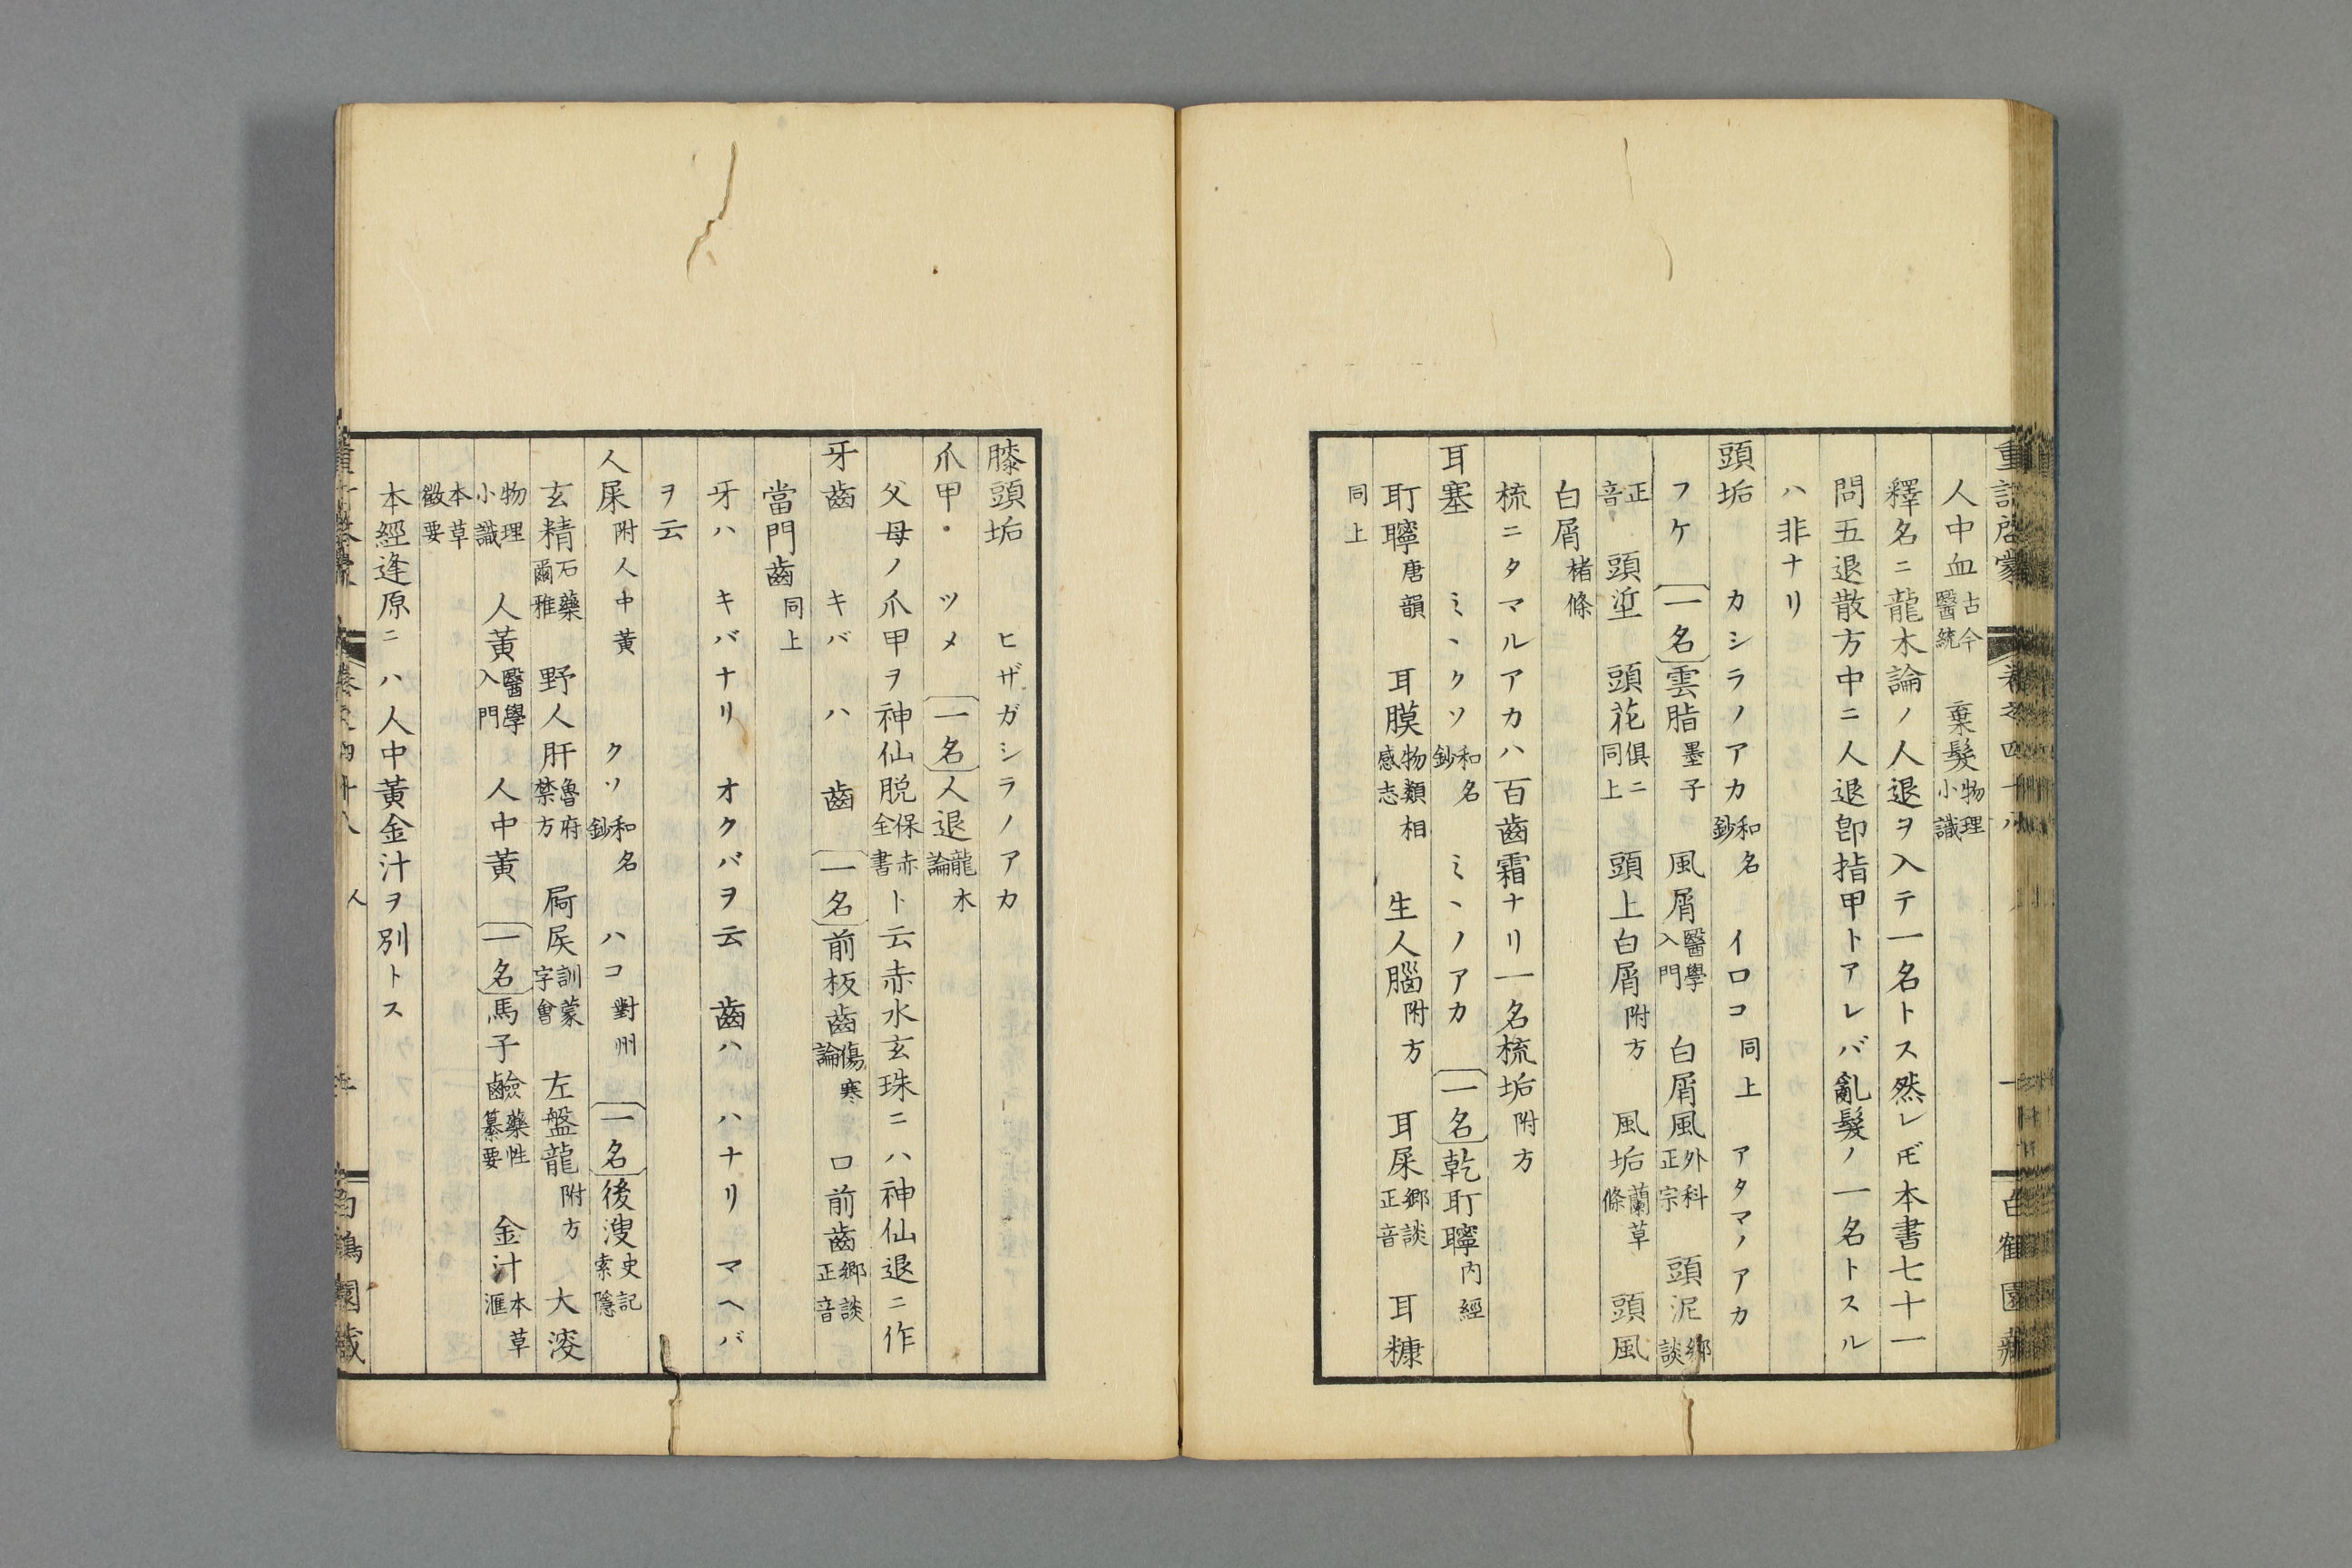 人中血 古今醫統 棄髮 物理小識
釋名ニ龍木論ノ人退ヲ入テ一名トス然レ𪜈本書七十一
問五退散方中ニ人退卽指甲トアレバ亂髮ノ一名トスル
ハ非ナリ
頭垢 カシラノアカ 和名鈔 イロコ 同上 アタマノアカ
フケ 一名 雲脂 墨子 風屑 醫學入門 白屑風 外科正宗 頭泥 鄉談
正音 頭坣 頭花 俱ニ同上 頭上白屑 附方 風垢 蘭草條 頭風
白屑 楮條
梳ニタマルアカハ百齒霜ナリ一名梳垢 附方
耳塞 ミヽクソ 和名鈔 ミヽノアカ 一名 乾耵聹 內經
耵聹 唐韻 耳膜 物類相感志 生人腦 附方 耳屎 鄉談正音 耳糠
同上
膝頭垢 ヒザガシラノアカ
爪甲 ツメ 一名 人退 龍木論
父母ノ爪甲ヲ神仙脱 保赤全書 ト云赤水玄珠ニハ神仙退ニ作
牙齒 キバ ハ 齒 一名 前板齒 傷寒論 口前齒 鄉談正音
當門齒 同上
牙ハ キバナリ オクバヲ云 齒ハ ハナリ マヘバ
ヲ云
人屎 附人中黃 クソ 和名鈔 ハコ 對州 一名 後溲 史記索隱
玄精 石藥爾雅 野人肝 魯府禁方 屙㞏 訓蒙字會 左盤龍 附方 大溲
物理小識 人黃 醫學入門 人中黃 一名 馬子鹼 藥性纂要 金汁 本草滙
本草徵要
本經逢原ニハ人中黃金汁ヲ別トス